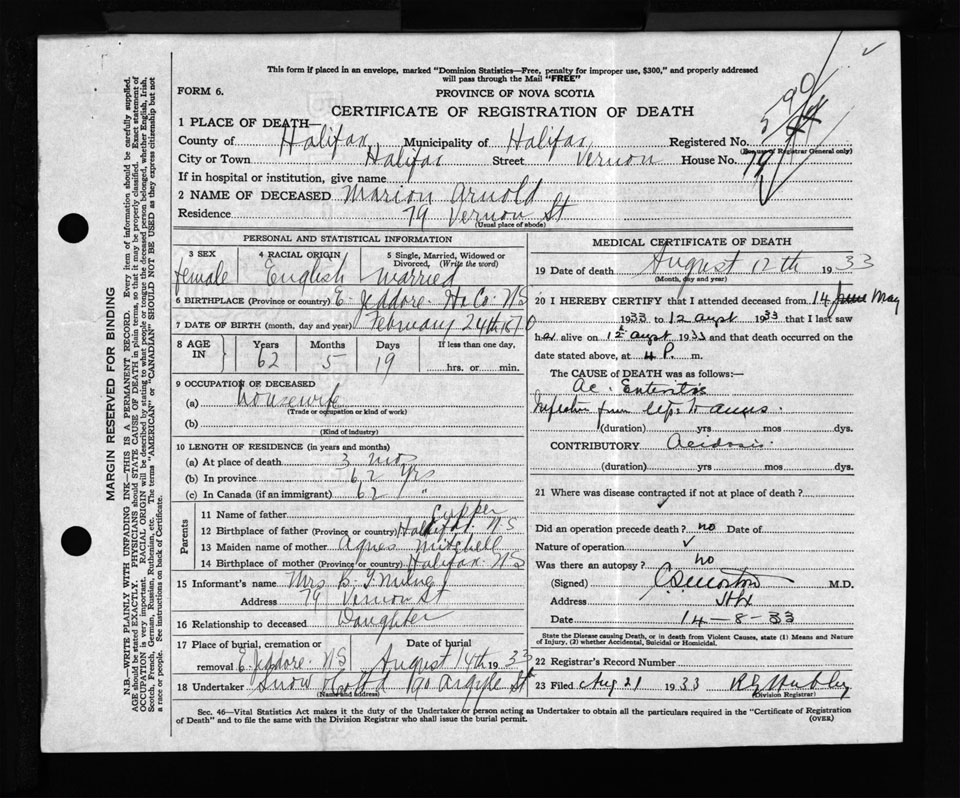 This form if placed in an envelope, marked "Dominion Statistics—Free, penalty for improper use, $300," and properly addressed
will pass through the Mail "FREE"
FORM 6.
PROVINCE OF NOVA SCOTIA
CERTIFICATE OF REGISTRATION OF DEATH
1 PLACE OF DEATH—
County of Halifax Municipality of Halifax Registered No.
(For use of Registrar General only)
City or Town Halifax Street Vernon House No. 79
If in hospital or institution, give name
2 NAME OF DECEASED Marion Arnold
Residence 79 Vernon St
(Usual place of abode)
PERSONAL AND STATISTICAL INFORMATION
3 SEX 4 RACIAL ORIGIN 5 Single, Married, Widowed or
Divorced, (Write the word)
female English Married
6 BIRTHPLACE (Province or country) E. Jeddore. Hx Co. NS
7 DATE OF BIRTH (month, day and year) February 24th 1870
8 AGE IN Years Months Days If less than one day,
62 5 19 hrs. or min.
9 OCCUPATION OF DECEASED
(a) housewife
(Trade or occupation or kind of work)
(b)
(Kind of industry)
10 LENGTH OF RESIDENCE (in years and months)
(a) At place of death 3 mos
(b) In province 62 yrs
(c) In Canada (if an immigrant) 62 "
Parents
11 Name of father
12 Birthplace of father (Province or country) Halifax. NS
13 Maiden name of mother Agnes Mitchell
14 Birthplace of mother (Province or country) Halifax. NS
15 Informant's name Mrs B. F. Milne
Address 79 Vernon St
16 Relationship to deceased Daughter
17 Place of burial, cremation or Date of burial
removal E. Jeddore. NS August 14th 1933
18 Undertaker Snow & Co Ltd 190 Argyle St
(Name and Address)
MEDICAL CERTIFICATE OF DEATH
19 Date of death August 12th 1933
(Month, day and year)
20 I HEREBY CERTIFY that I attended deceased from 14 May
1933 to 12 augst 1933 that I last saw
her alive on 12 augst 1933 and that death occurred on the
date stated above, at 4 P. m.
The CAUSE OF DEATH was as follows:
Ac. Enteritis
Infection from lips to anus.
(duration) yrs mos dys.
CONTRIBUTORY Acidosis.
(duration) yrs mos dys.
21 Where was disease contracted if not at place of death?
Did an operation precede death? no Date of
Nature of operation
Was there an autopsy? no
(Signed) M.D.
Address Hfx
Date 14-8-33
State the Disease causing Death, or in death from Violent Causes, state (1) Means and Nature
of Injury, (2) whether Accidental, Suicidal or Homicidal.
22 Registrar's Record Number
23 Filed Aug 21 1933
(Division Registrar)
Sec. 46—Vital Statistics Act makes it the duty of the Undertaker or person acting as Undertaker to obtain all the particulars required in the "Certificate of Registration
of Death" and to file the same with the Division Registrar who shall issue the burial permit. (OVER)
MARGIN RESERVED FOR BINDING
N.B.—WRITE PLAINLY WITH UNFADING INK—THIS IS A PERMANENT RECORD. Every item of information should be carefully supplied.
AGE should be stated EXACTLY. PHYSICIANS should STATE CAUSE OF DEATH in plain terms, so that it may be properly classified. Exact statement of
OCCUPATION is very important. RACIAL ORIGIN will be described by stating to what people or tongue the deceased person belonged, whether English, Irish,
Scotch, French, German, Russian, Ruthenian, etc. The terms "AMERICAN" or "CANADIAN" SHOULD NOT BE USED as they express citizenship but not
a race or people. See instructions on back of Certificate.